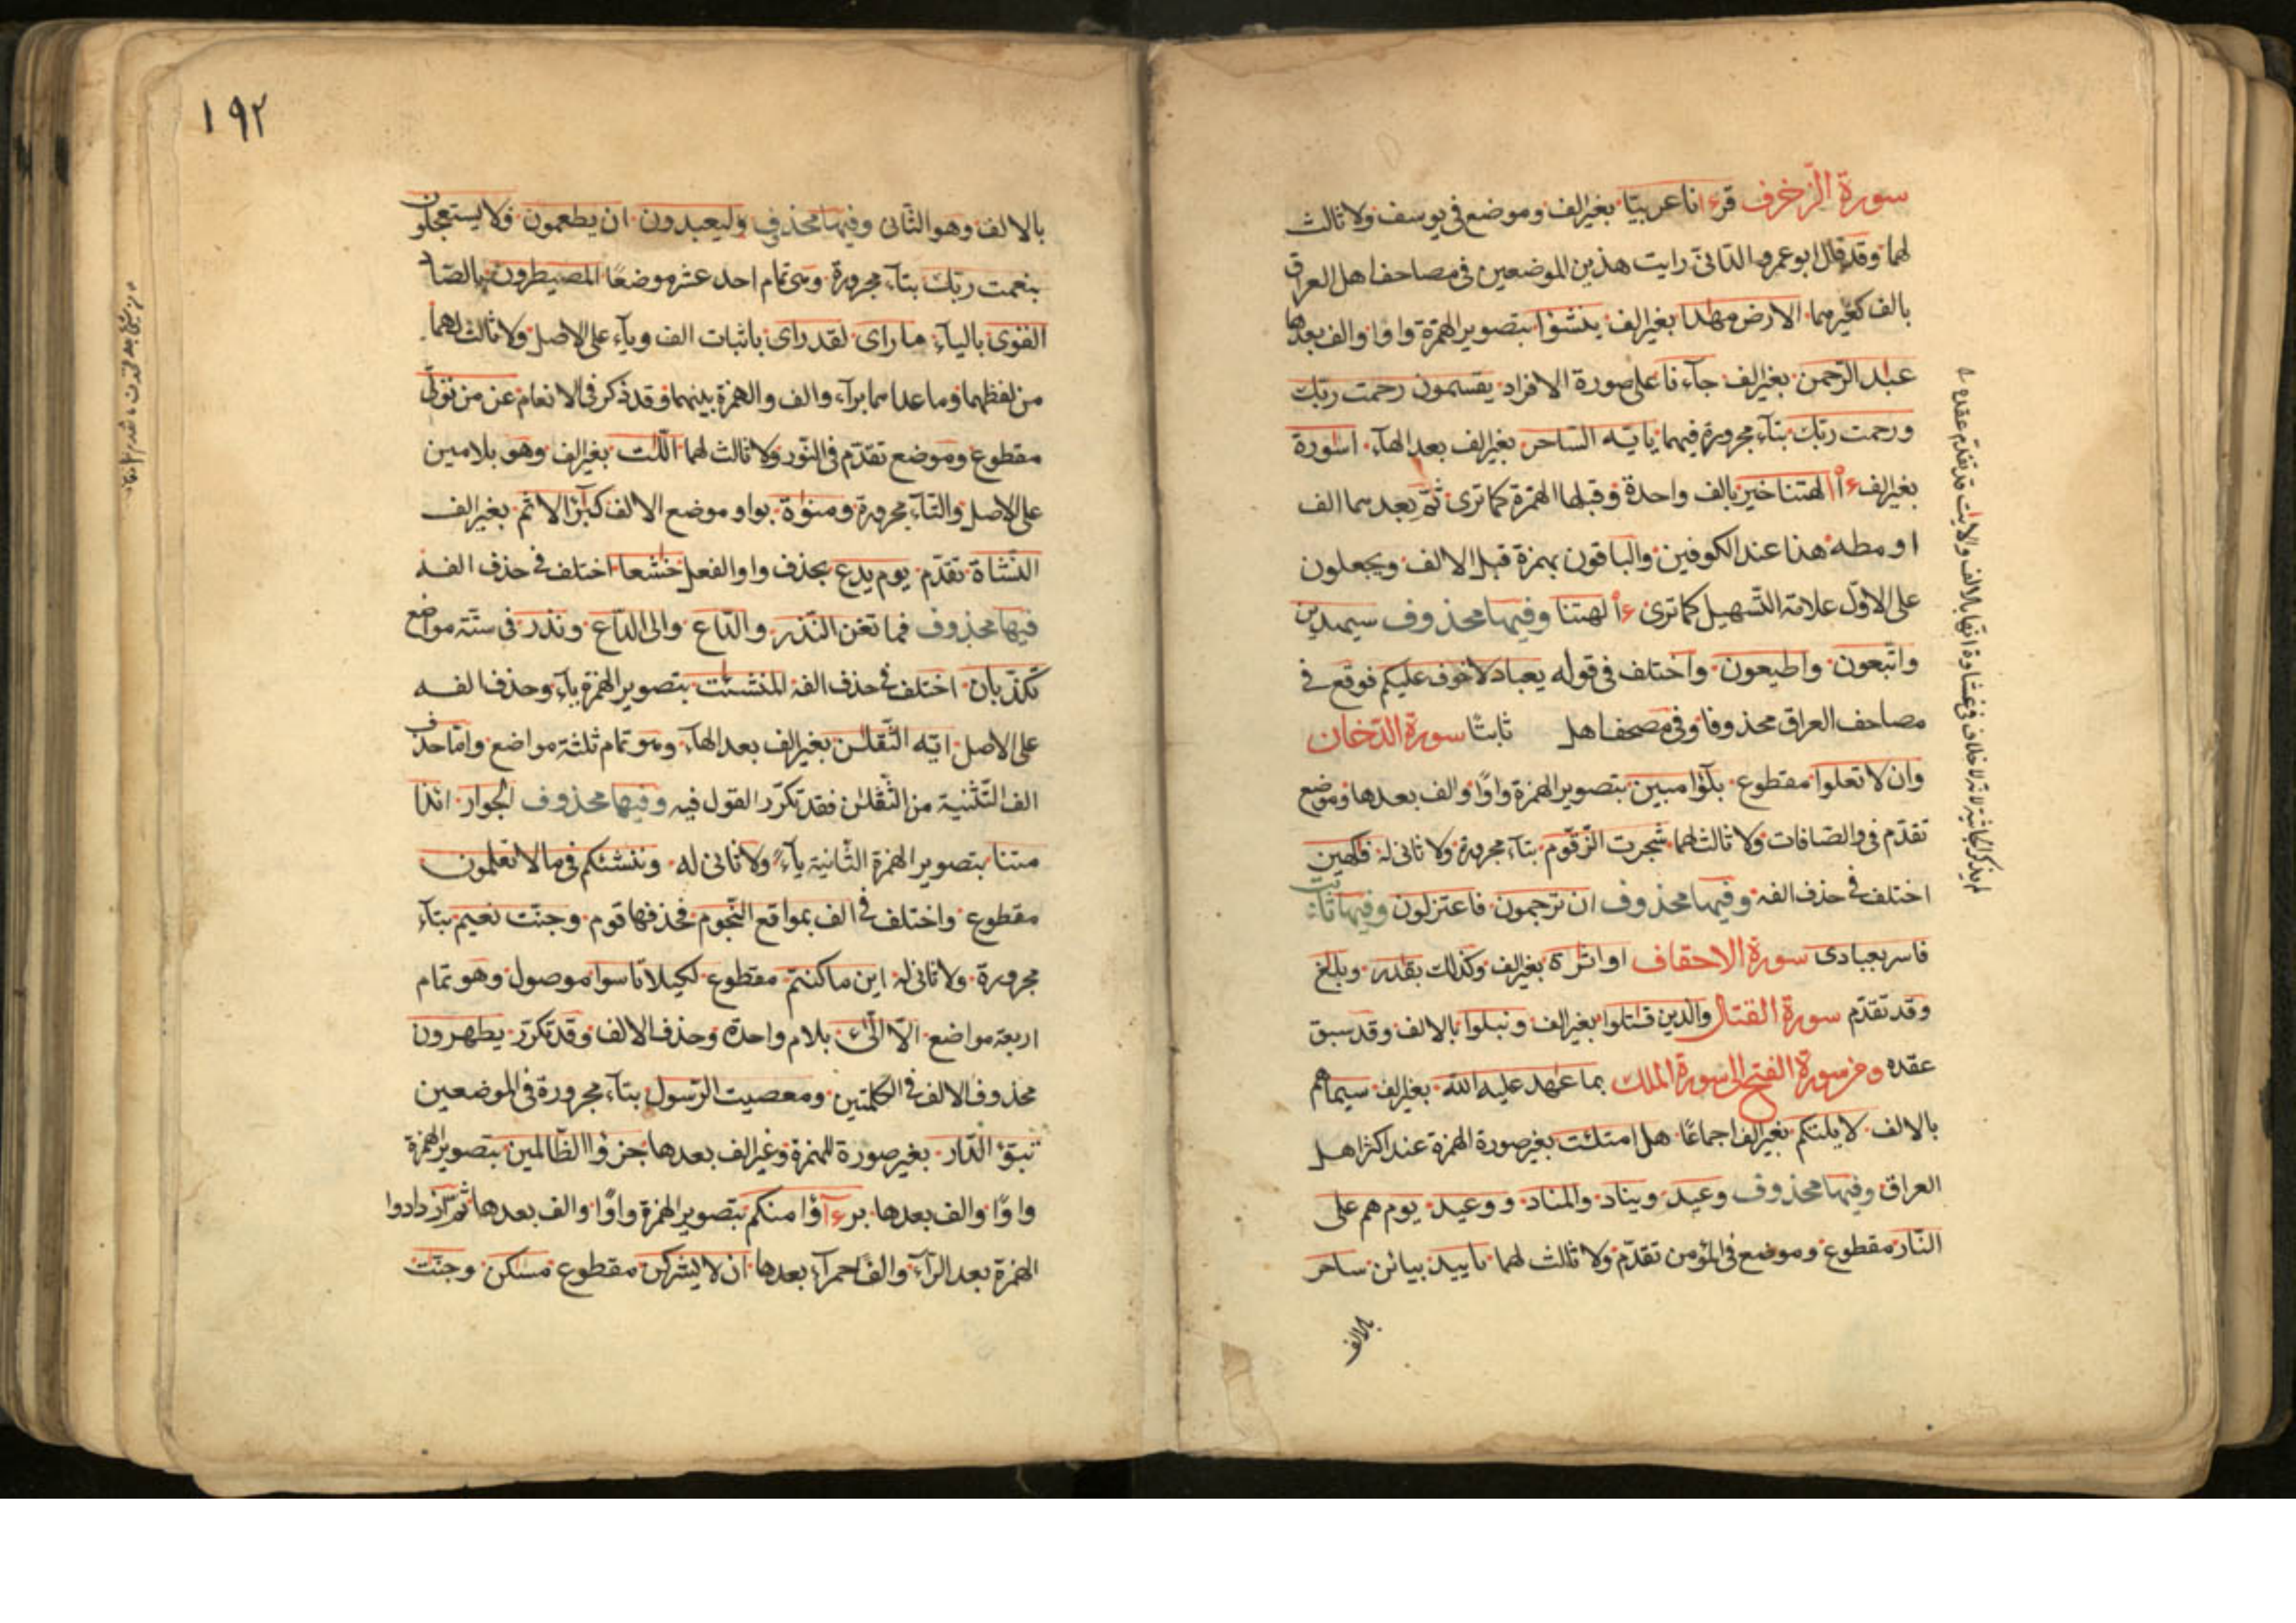 سورة الزخرف قرءانا عربيّا بغير الف وموضع في يوسف ولا ثالث
لهما وقد قال ابو عمرو الدّانيّ رايت هذين الموضعين في مصاحف اهل العراق
بالف كغيرهما الارض مهدا بغير الف ينشؤا بتصوير الهمزة واوا والف بعدها
عبد الرّحمن بغير الف جآءنا على صورة الافراد يقسمون رحمت ربّك
ورحمت ربّك بتآء مجرورة فيهما يايّه السّاحر بغير الف بعد الهآء اسورة
بغير الف ءأالهتنا خير بالف واحدة وقبلها الهمزة كما ترى ثمّ بعدهما الف
او مطه هذا عند الكوفين والباقون بهمزة قبل الالف ويجعلون
على الاوّل علامة التّسهيل كما ترى ءألهتنا وفيها محذوف سيهدين
واتّبعون واطيعون واختلف في قوله يعباد لا خوف عليكم فوقع في
مصاحف العراق محذوفا وفي مصحف اهل ثابتًا سورة الدّخان
وان لا تعلوا مقطوع بلٓؤا مبين بتصوير الهمزة واوًا والف بعدها وموضع
تقدّم في والصّافات ولا ثالث لهما شجرت الزّقّوم بتآء مجرورة ولا ثاني له فكهين
اختلف في حذف الفه وفيها محذوف ان ترجمون فاعتزلون وفيها ثابت
فاسر بعبادى سورة الاحقاف او اثرة بغير الف وكذلك بقدر وبلغ
وقد تقدّم سورة القتال والّذين قتلوا بغير الف ونبلوا بالالف وقد سبق
عقده ومن سورة الفتح الى سورة الملك بما عهد عليه الله بغير الف سيماهم
بالالف لا يلتكم بغير الف اجماعًا هل امتلئت بغير صورة الهمزة عند اكثر اهل
العراق وفيها محذوف وعيد ويناد والمناد ووعيد يوم هم على
النّار مقطوع وموضع في المؤمن تقدّم ولا ثالث لهما باييد بيائن ساحر
بالالف
لم يذكر الجاثية لانه لا خلاف في غشاوة انّها بالالف والايت قد تقدّم عقده
١٩٢
بالالف وهو الثّاني وفيها محذوف وليعبدون ان يطعمون فلا يستعجلون
بنعمت ربّك بتآء مجرورة وهي تمام احد عشر موضعًا المصيطرون بالصّاد
القوى باليآء ما راى لقد راى باثبات الف ويآء على الاصل ولا ثالث لهما
من لفظهما وما عداهما برآء والف والهمزة بينهما وقد ذكر في الانعام عن من تولّى
مقطوع وموضع تقدّم في النّور ولا ثالث لهما اللّت بغير الف وهو بلامين
على الاصل والتّآء مجرورة ومنوة بواو موضع الالف كبٓئر الاثم بغير الف
النّشاة تقدّم يوم يدع بحذف واو الفعل خشعا اختلف في حذف الفه
فيها محذوف فما تغن النّذر والدّاع والى الدّاع ونذر في ستّة مواضع
تكذّبان اختلف في حذف الفه المنشئت بتصوير الهمزة يآء وحذف الفه
على الاصل ايّه الثّقلن بغير الف بعد الهآء وهو تمام ثلثة مواضع وامّا حذف
الف التّثنية من الثّقلن فقد تكرّر القول فيه وفيها محذوف الجوار ائذا
متنا بتصوير الهمزة الثّانية يآءً ولا ثاني له وننشئكم في ما لا تعلمون
مقطوع واختلف في الف بمواقع النّجوم فحذفها قوم وجنّت نعيم بتآء
مجرورة ولا ثاني له اين ما كنتم مقطوع لكيلا تاسوا موصول وهو تمام
اربعة مواضع الّا الّٰئ بلام واحدة وحذف الالف وقد تكرّر يظهرون
محذوف الالف في الكلمتين ومعصيت الرّسول بتآء مجرورة في الموضعين
تبوّؤ الدّار بغير صورة للهمزة وغير الف بعدها جزؤا الظّالمين بتصوير الهمزة
واوًا والف بعدها برءآؤا منكم بتصوير الهمزة واوًا والف بعدها ثمّ ازدادوا
الهمزة بعد الرّآء والفًا حمرآء بعدها ان لا يشركن مقطوع مسكن وجنّت